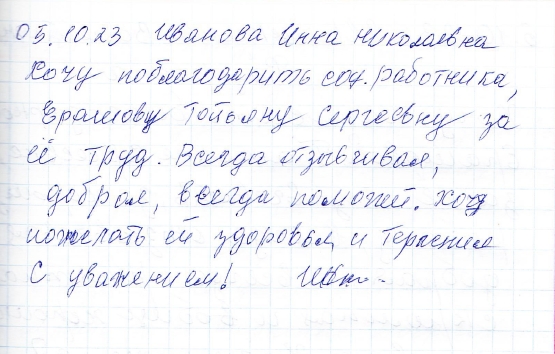 05.10.23 Иванова Инна Николаевна
Хочу поблагодарить соц. работника,
Ерашову Татьяну Сергеевну за
её труд. Всегда отзывчивая,
добрая, всегда поможет. Хочу
пожелать ей здоровья и терпения
С уважением!